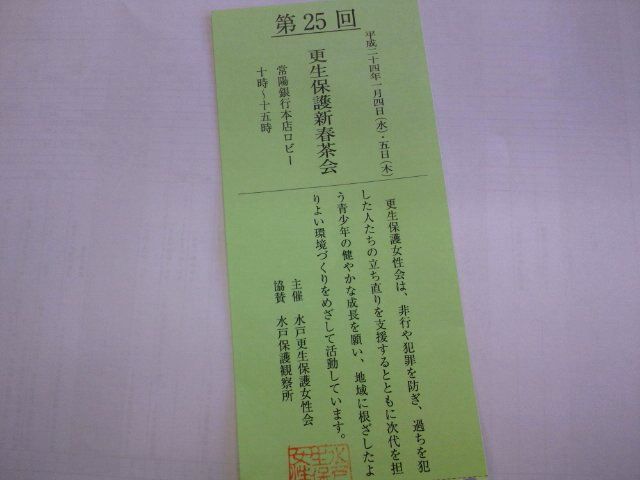 第25回
平成二十四年一月四日(水)・五日(木)
更生保護新春茶会
常陽銀行本店ロビー
十時~十五時
更生保護女性会は、非行や犯罪を防ぎ、過ちを犯
した人たちの立ち直りを支援するとともに次代を担
う青少年の健やかな成長を願い、地域に根ざしたよ
りよい環境づくりをめざして活動しています。
主催 水戸更生保護女性会
協賛 水戸保護観察所
水戸
生保
女性